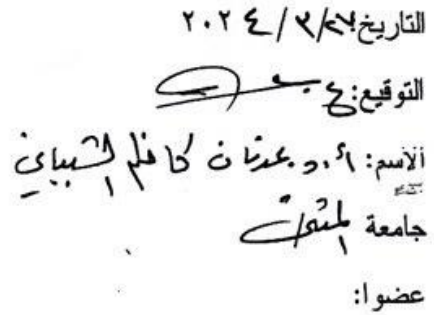 التاريخ: ٢٧/٣/٢٠٢٤
التوقيع:
الأسم: أ.د. عدنان كاظم الشيباني
جامعة المثنى
عضوا: